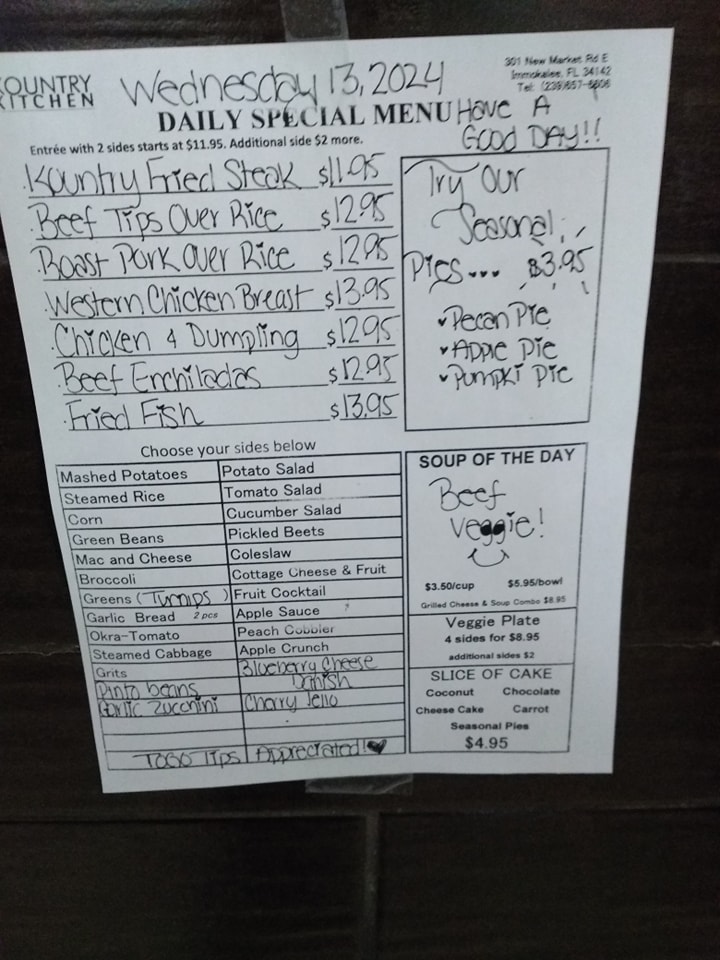 KOUNTRY
KITCHEN
Wednesday 13, 2024
301 New Market Rd E
Immokalee, FL 34142
Tel: (239)657-
DAILY SPECIAL MENU
HAVE A
GOOD DAY!!
Entrée with 2 sides starts at $11.95. Additional side $2 more.
Kountry Fried Steak $11.95
Beef Tips Over Rice $12.95
Roast Pork Over Rice $12.95
Western Chicken Breast $13.95
Chicken & Dumpling $12.95
Beef Enchiladas $12.95
Fried Fish $13.95
Try Our
Seasonal
Pies... $3.95
✓Pecan Pie
✓Apple Pie
✓Pumpki Pie
Choose your sides below
Mashed Potatoes Potato Salad
Steamed Rice Tomato Salad
Corn Cucumber Salad
Green Beans Pickled Beets
Mac and Cheese Coleslaw
Broccoli Cottage Cheese & Fruit
Greens (Turnips) Fruit Cocktail
Garlic Bread 2 pcs Apple Sauce
Okra-Tomato Peach Cobbler
Steamed Cabbage Apple Crunch
Grits Blueberry Cheese
Pinto beans Danish
Garlic Zucchini Cherry Jello
TOGO Tips Appreciated!
SOUP OF THE DAY
Beef
Veggie!
$3.50/cup $5.95/bowl
Grilled Cheese & Soup Combo $8.95
Veggie Plate
4 sides for $8.95
additional sides $2
SLICE OF CAKE
Coconut Chocolate
Cheese Cake Carrot
Seasonal Pies
$4.95